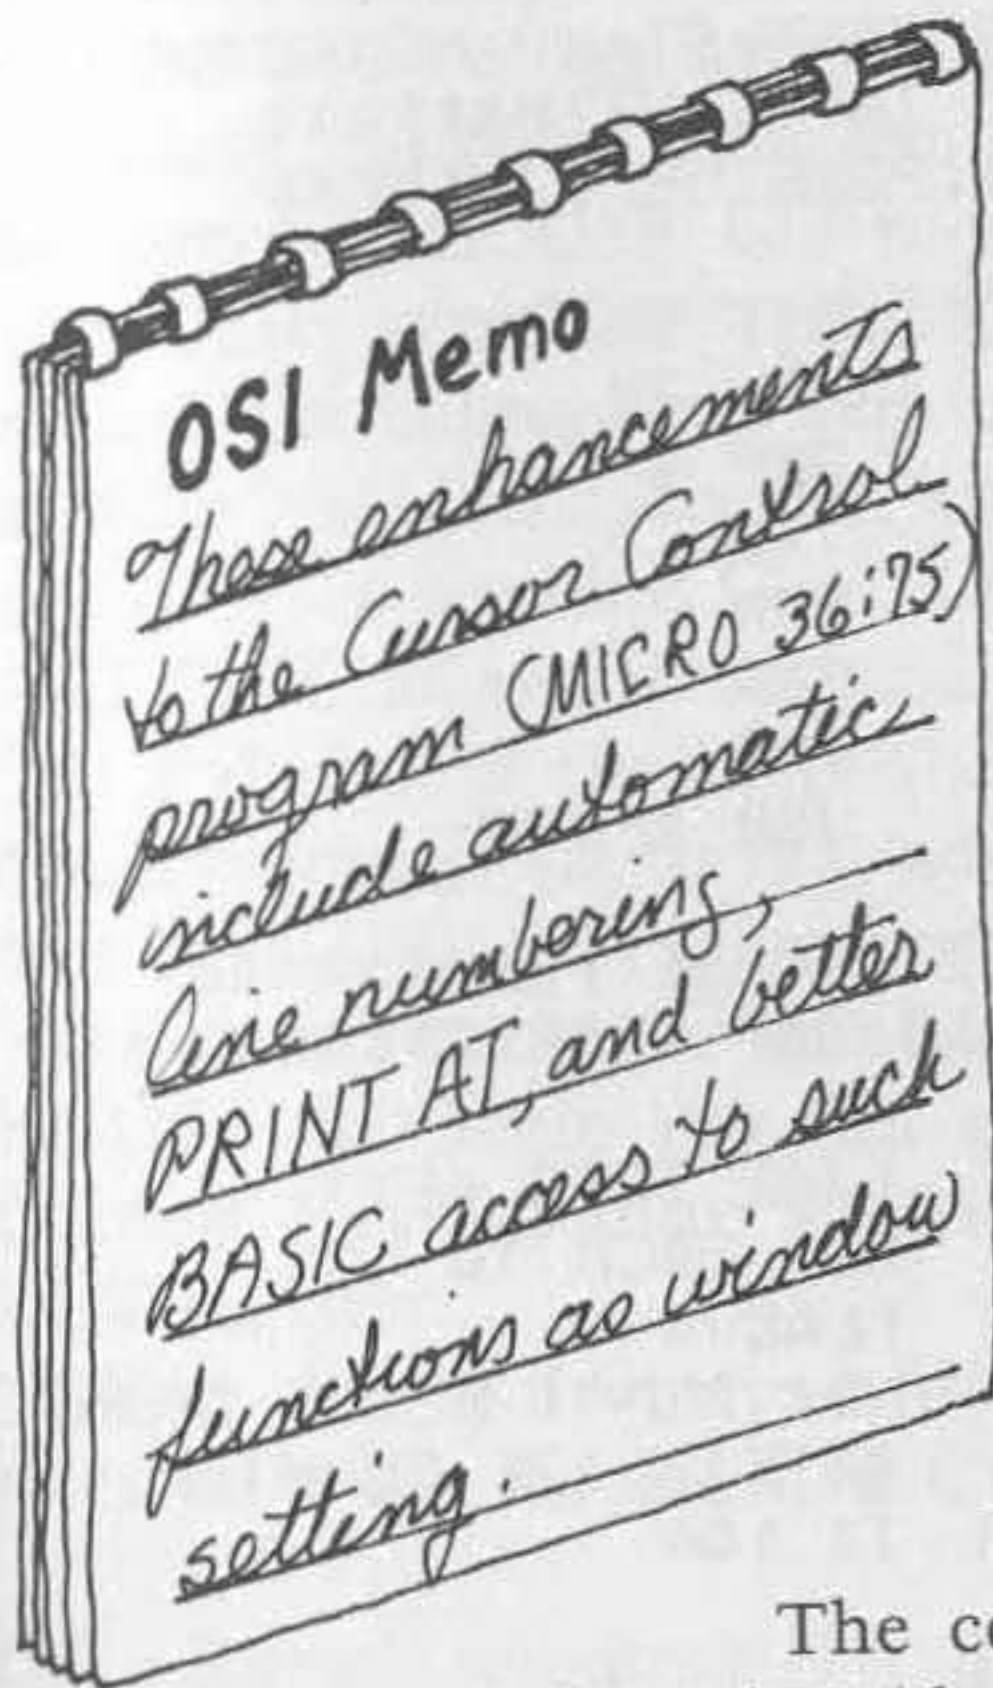 OSI Memo
These enhancements
to the Cursor Control
program (MICRO 36:75)
include automatic
line numbering,
PRINT AT, and better
BASIC access to such
functions as window
setting.
The